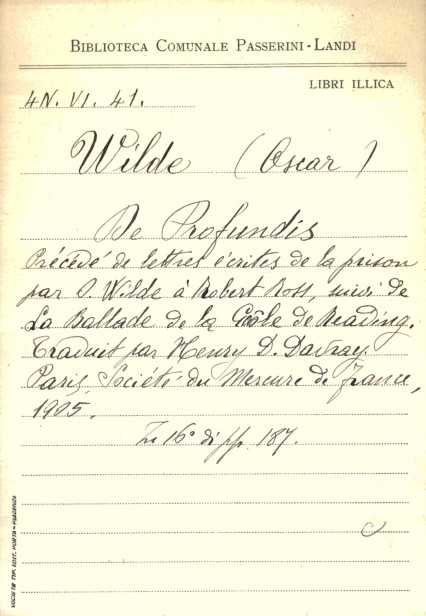 BIBLIOTECA COMUNALE PASSERINI-LANDI
LIBRI ILLICA
4N. VI. 41.
Wilde (Oscar)
De Profundis
Précédé de lettres écrites de la prison
par O. Wilde à Robert Ross, suivi de
La Ballade de la Geôle de Reading.
Traduit par Henry D. Davray.
Paris, Société du Mercure de France,
1905.
In 16° di pp. 187.
C
SOCIETÀ TIP. EDIT. PORTA-PIACENZA